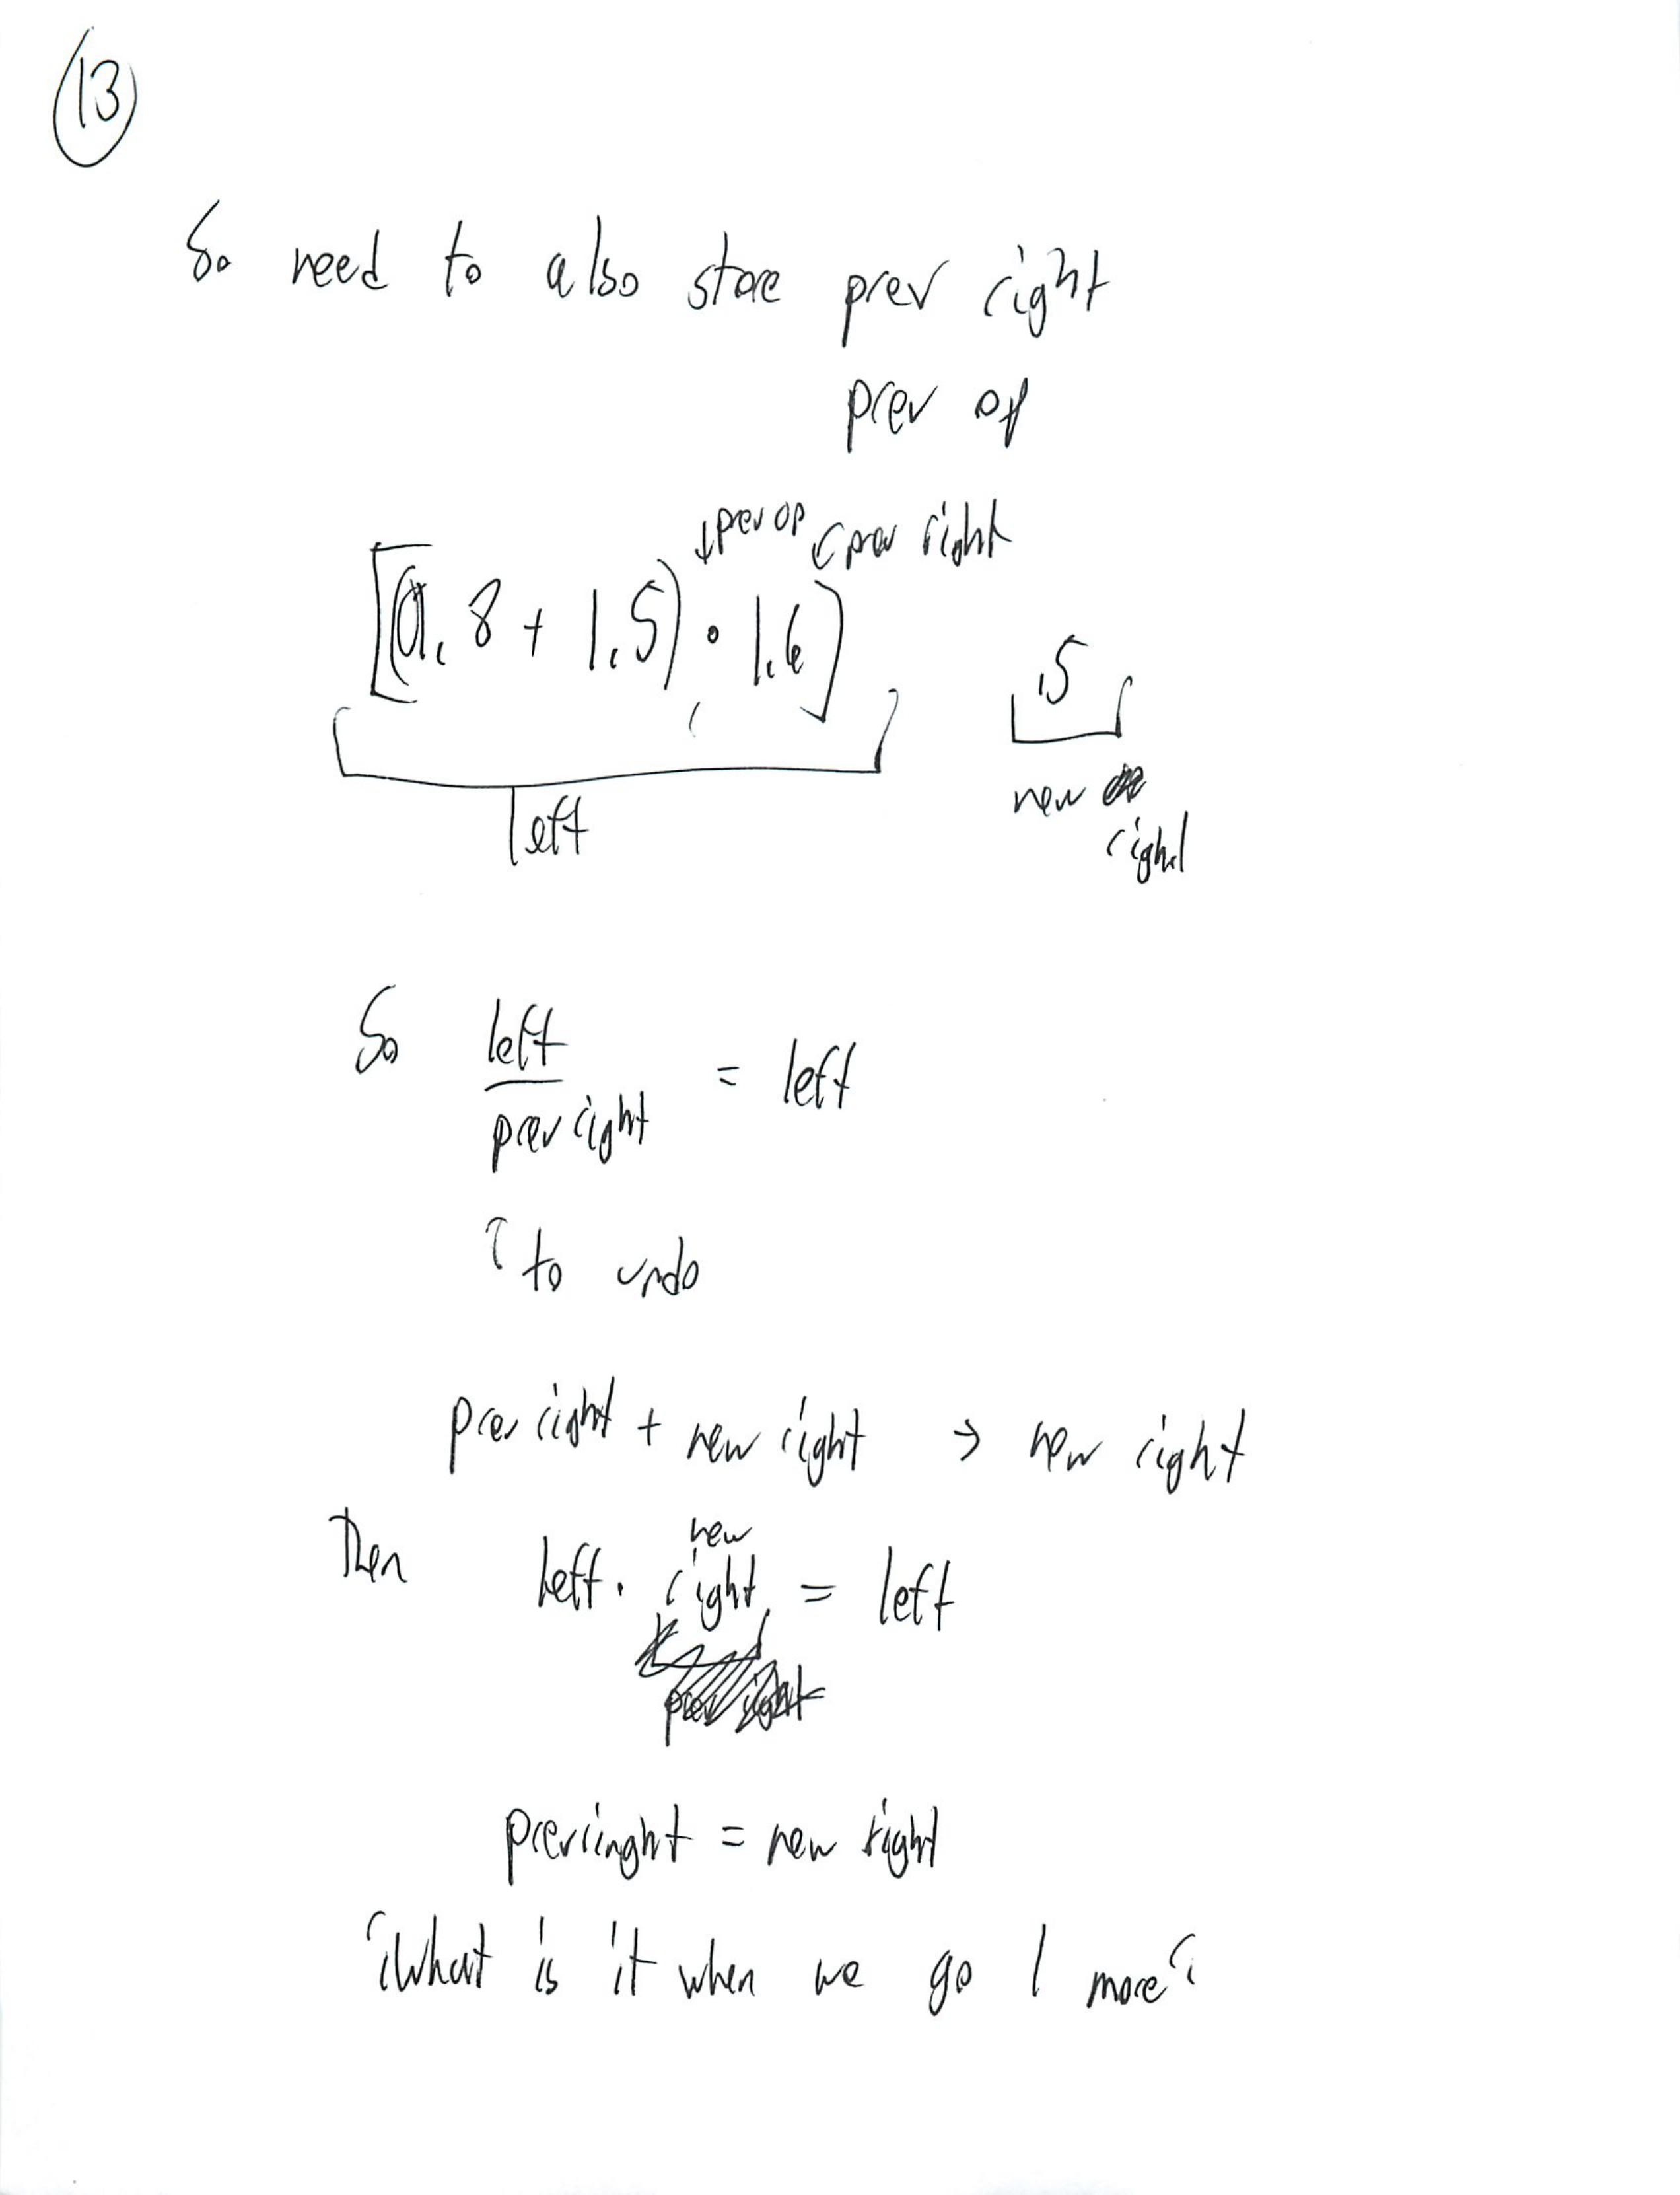 13
So need to also store prev right
prev op
↓prev op prev right
[(0.8 + 1.5) • 1.6] .5
left new
right
So left/prev right = left
↑ to undo
prev right + new right → new right
Then left • new right = left
prevringht = new right
What is it when we go 1 more?